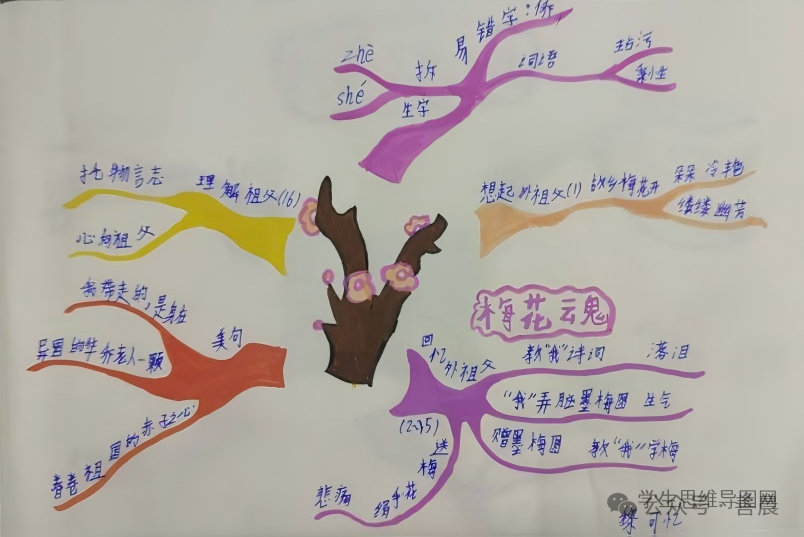 易错字:侨
词语
玷污
剩性
拆
zhé
shé
生字
想起外祖父(1)
故乡梅花开
朵朵冷艳
缕缕幽芳
梅花云鬼
回忆外祖父
(2~15)
教"我"诗词
落泪
"我"弄脏墨梅图
生气
赠墨梅图
教"我"学梅
送梅花
绢手
悲痛
美句
我带走的,是身在
异国的华侨老人一颗
眷眷祖国的赤子之心
理解祖父(16)
托物言志
心向祖父
学生思维导图网
公众号·善晨
可忆